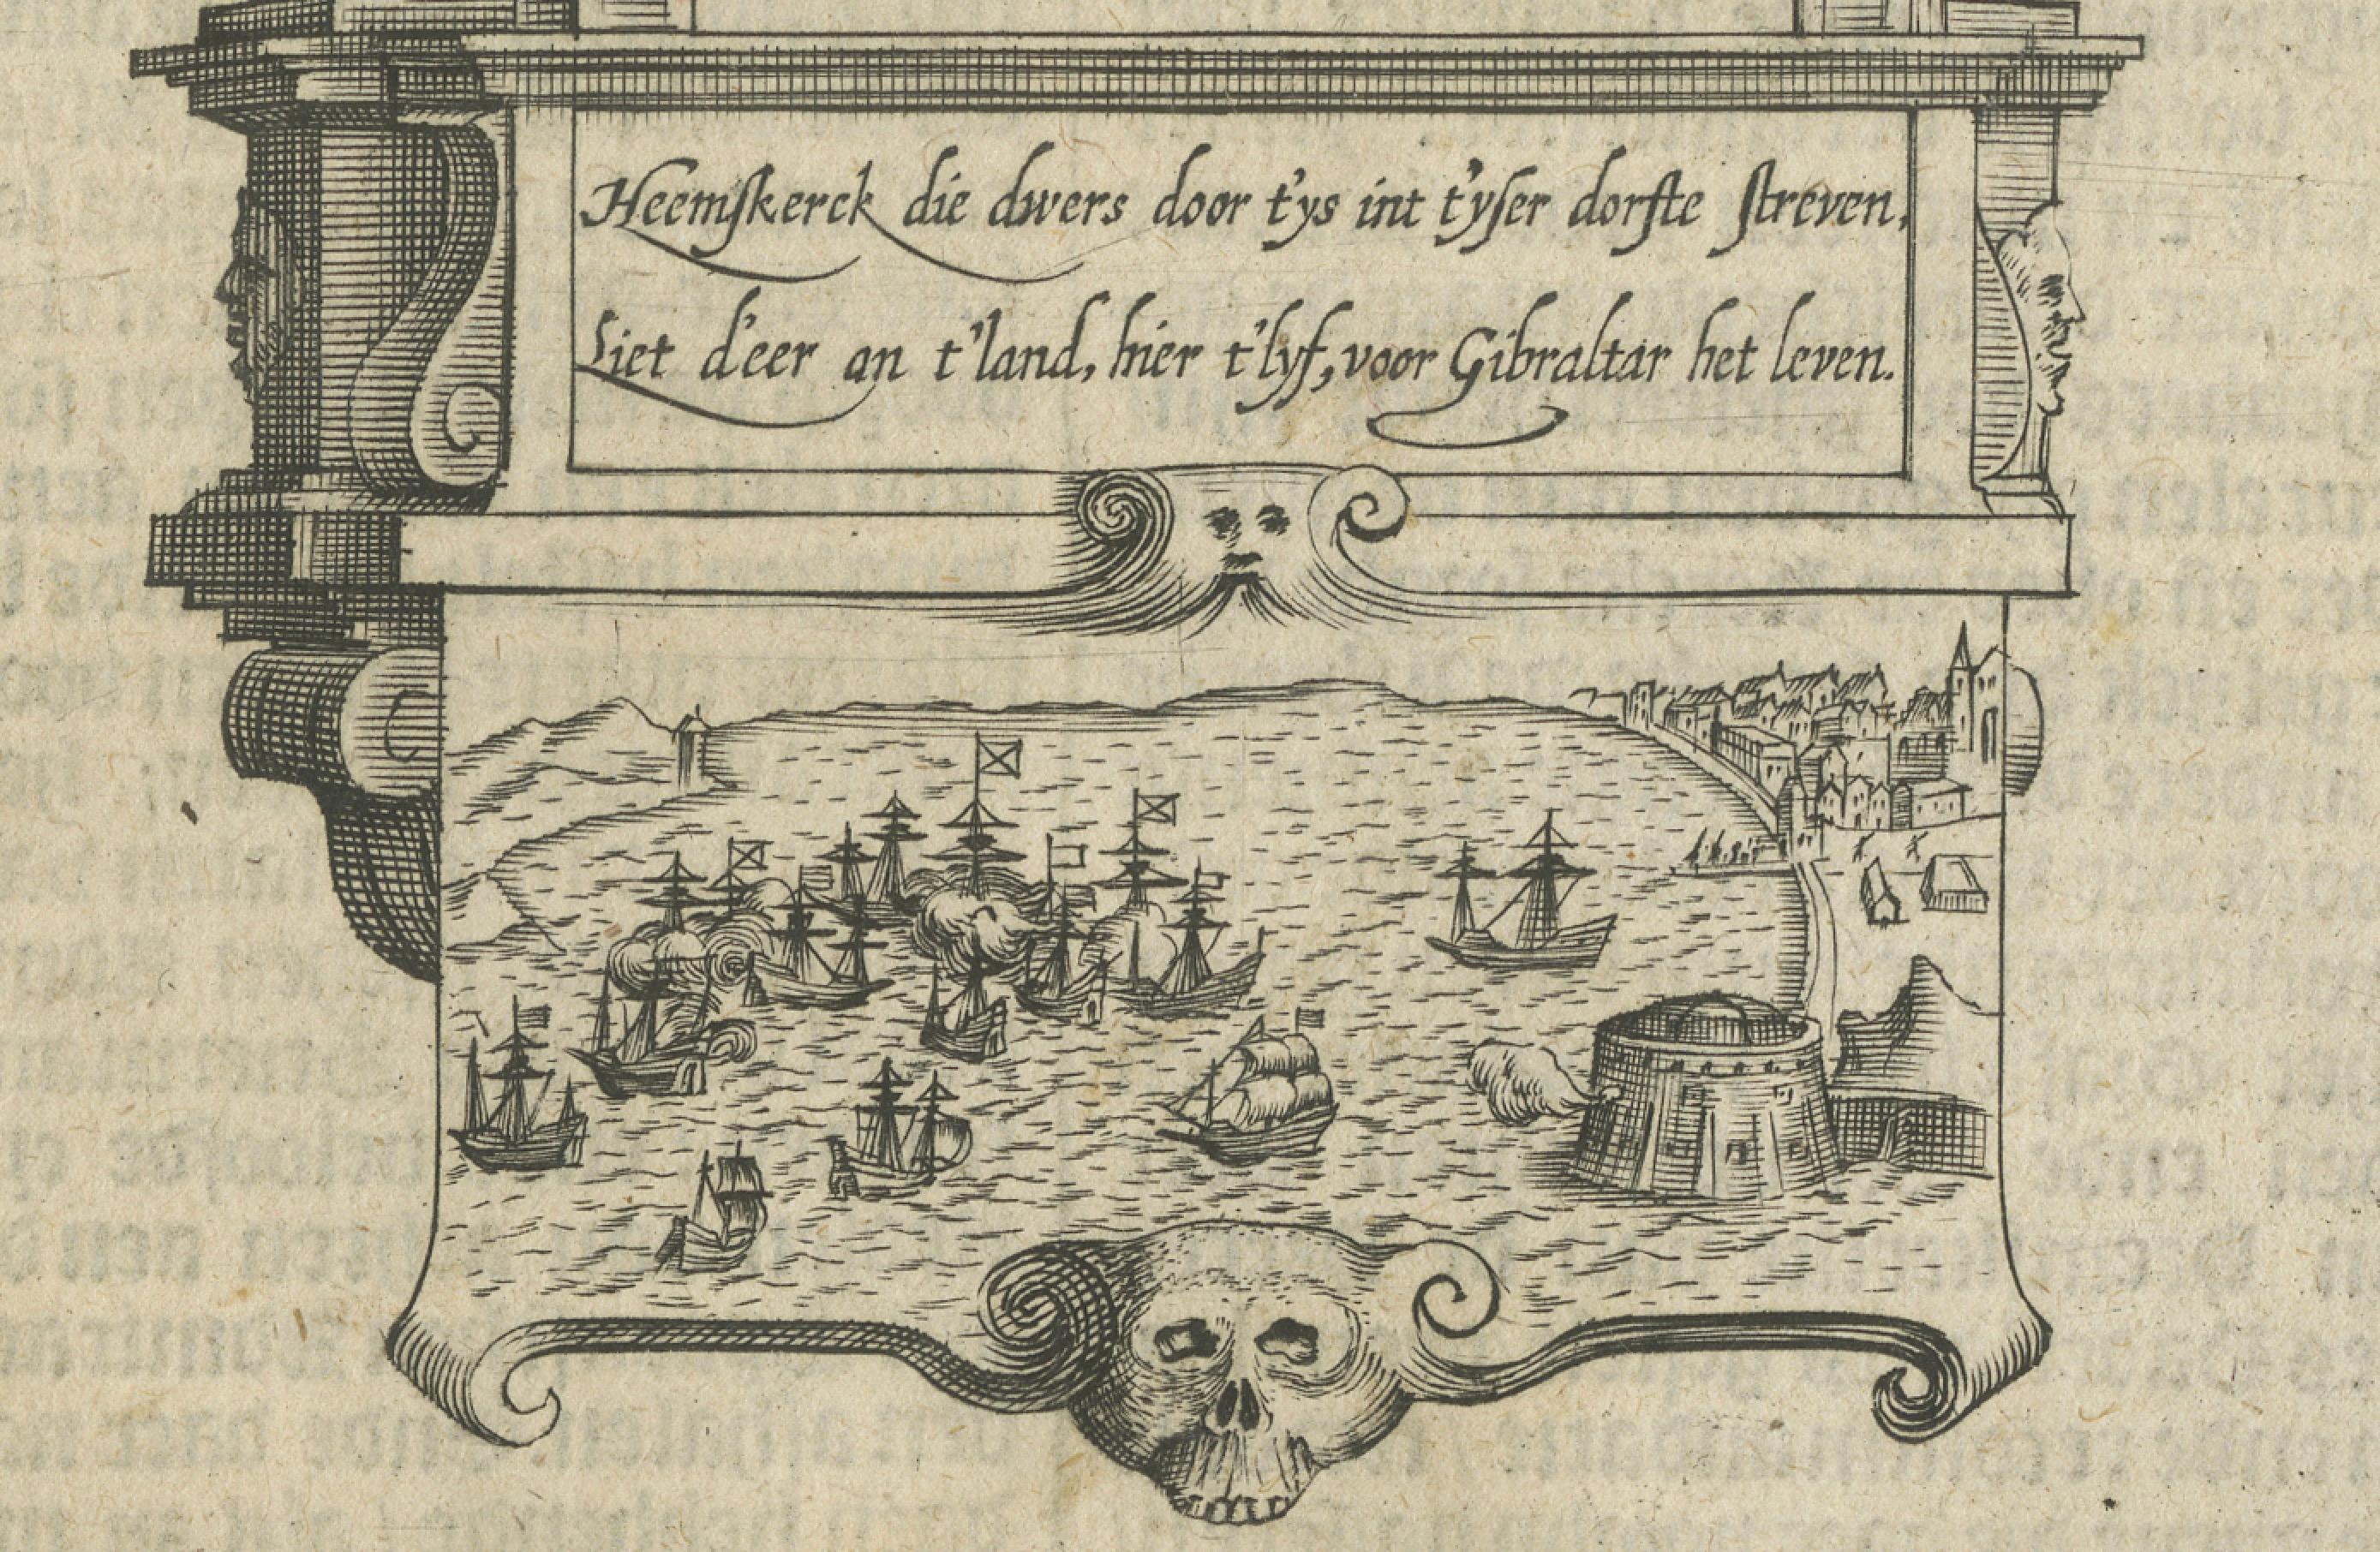 Heemſkerck die dwers door t'ys int t'yſer dorſte ſtreven,
Liet d'eer an t'land, hier t'lyf, voor Gibraltar het leven.